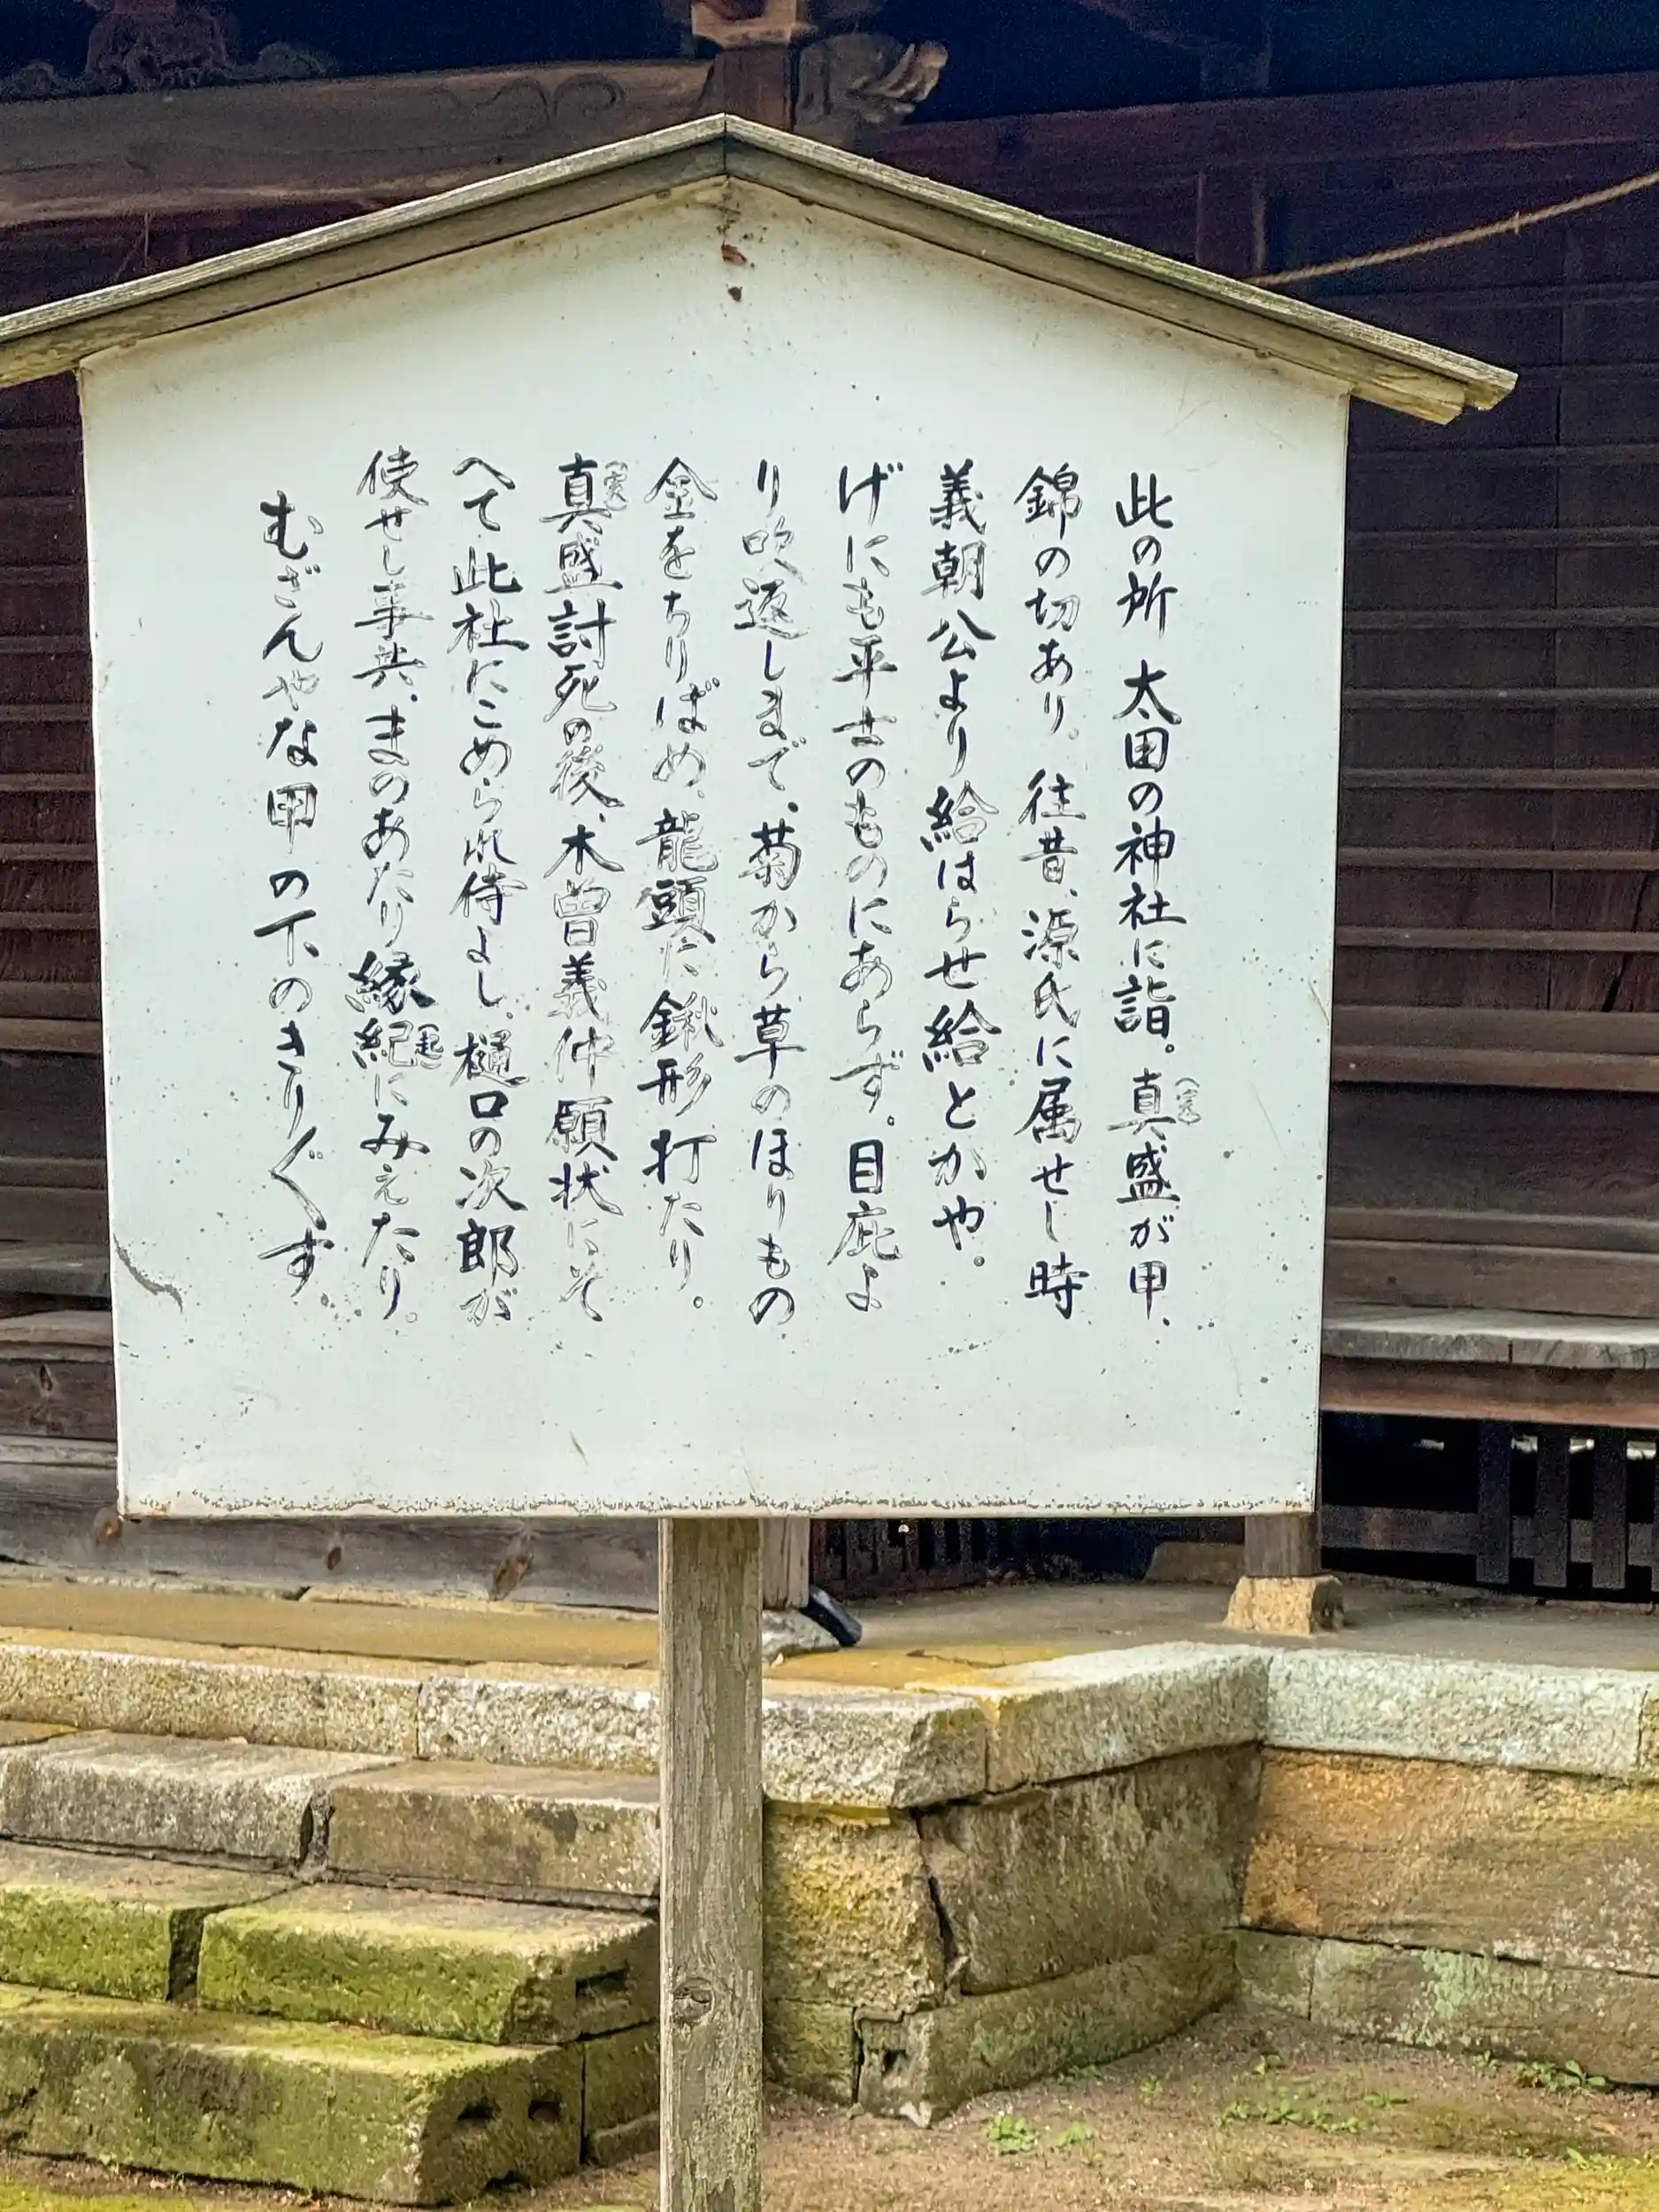 此の所 太田の神社に詣。真盛が甲、
錦の切あり。往昔、源氏に属せし時
義朝公より給はらせ給とかや。
げにも平士のものにあらず。目庇よ
り吹返しまで、菊から草のほりもの
金をちりばめ、龍頭に鍬形打たり。
真盛討死の後、木曽義仲願状にそ
へて此社にこめられ侍よし、樋口の次郎が
使せし事共、まのあたり縁紀にみえたり。
むざんやな甲の下のきり〲す